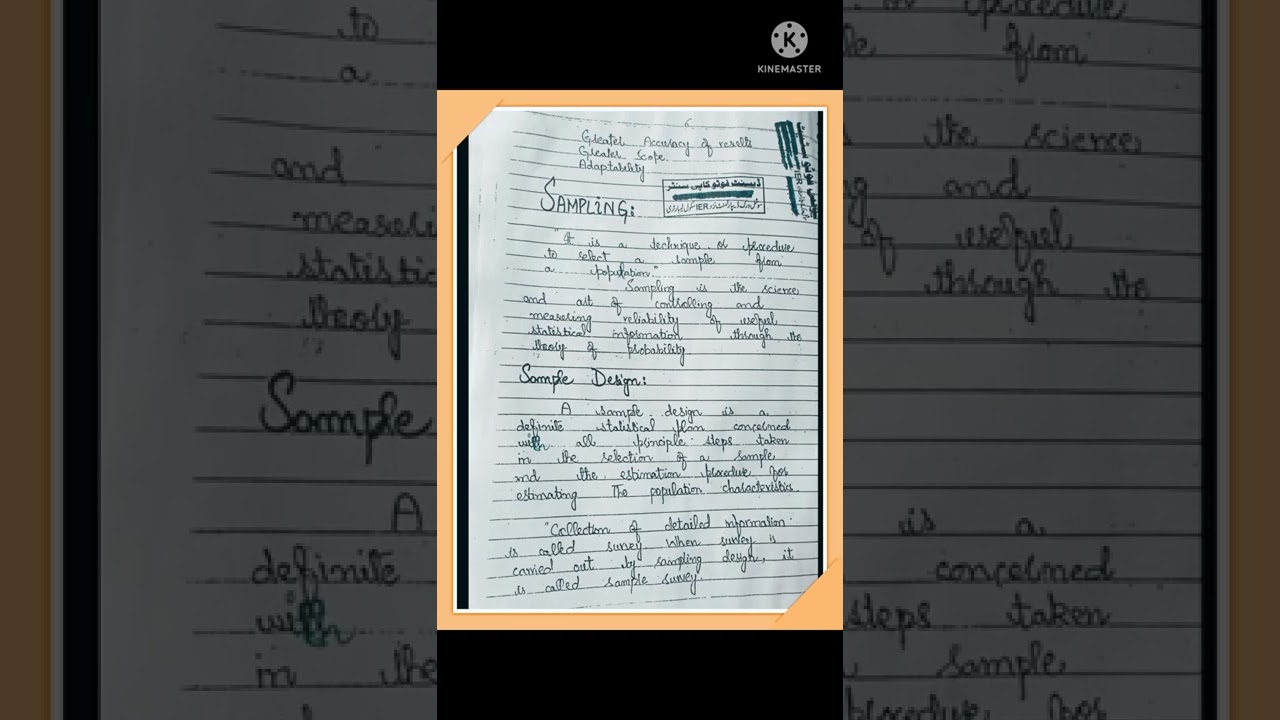 KINEMASTER
6
Greater Accuracy of results
Greater Scope.
Adaptability
ڈیسنٹ فوٹو کاپی سنٹر
IER
SAMPLING:
"It is a technique or procedure
to select a sample from
a population"
Sampling is the science
and art of controlling and
measuring reliability of useful
statistical information through the
theory of probability.
Sample Design:
A sample design is a
definite statistical plan concerned
with all principle steps taken
in the selection of a sample
and the estimation procedure for
estimating The population characteristics.
"Collection of detailed information
is called survey. When survey is
carried out by sampling design, it
is called sample survey.